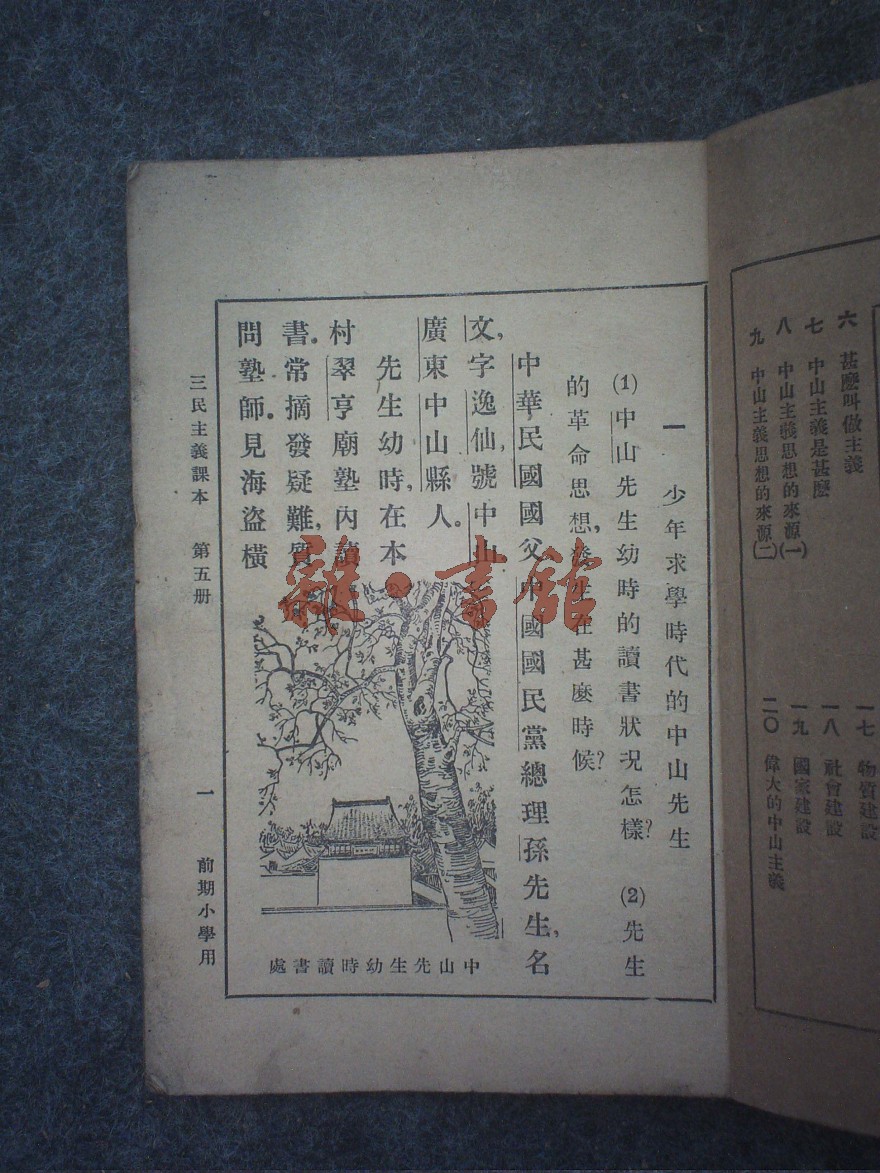 六　甚麼叫做主義
七　中山主義是甚麼
八　中山主義思想的來源(一)
九　中山主義思想的來源(二)
一七　物質建設
一八　社會建設
一九　國家建設
二〇　偉大的中山主義
一　少年求學時代的中山先生
(1)中山先生幼時的讀書狀況怎樣？　(2)先生
的革命思想，發生在甚麼時候？
中華民國國父中國國民黨總理孫先生，名
文，字逸仙，號中山，
廣東中山縣人。
先生幼時，在本
村翠亨廟塾內讀
書。常摘發疑難，質
問塾師。見海盜橫
中山先生幼時讀書處
三民主義課本　第五册　一　前期小學用
雜·書館